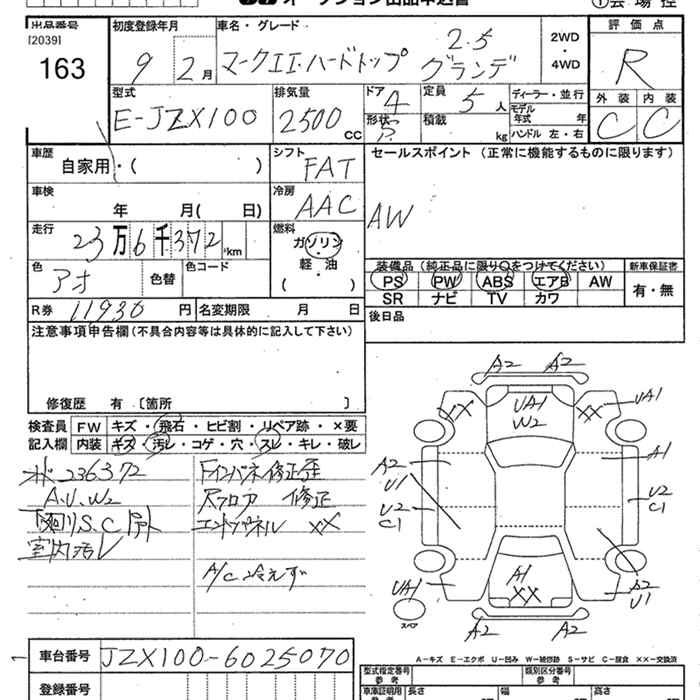 オークション出品申込書
①会場控
出品番号
[2039]
163
初度登録年月
9年 2月
車名・グレード
マークII・ハードトップ 2.5 グランデ
2WD
・
4WD
評価点
R
型式
E-JZX100
排気量
2500 CC
ドア
4
形状
定員
5人
積載
kg
ディーラー・並行
モデル年式 年
ハンドル 左・右
外装
C
内装
C
車歴
自家用・( )
シフト
FAT
セールスポイント (正常に機能するものに限ります)
AW
車検
年 月( 日)
冷房
AAC
走行
23万6千372 km
燃料
ガソリン
・
軽・油
( )
色
アオ
色替
色コード
装備品 (純正品に限り○をつけてください)
PS PW ABS エアB AW
SR ナビ TV カワ
新車保証書
有・無
R券
11930円
名変期限 月 日
後日品
注意事項申告欄 (不具合内容等は具体的に記入して下さい)
修復歴 有 〔箇所
検査員記入欄
FW キズ・飛石・ヒビ割・リペア跡・×要
内装 キズ・汚レ・コゲ・穴・スレ・キレ・破レ
236372
A.U.W2
下廻りS.C
室内汚レ
Fインパネ修正歪
Rフロア 修正
エンドパネル ××
A/C冷えず
A2 A2
XX
UA1
W2
××
UA1
A2
U1
A1
U2
C1
U2
C1
A1
××
UA1
スペア
A2
U1
A2 A2
車台番号
JZX100-6025070
A-キズ E-エクボ U-凹み W-補修跡 S-サビ C-腐食 ××-交換済
登録番号
型式指定番号
参考
類別区分番号
参考
車庫証明用
参考
長さ
幅
高さ